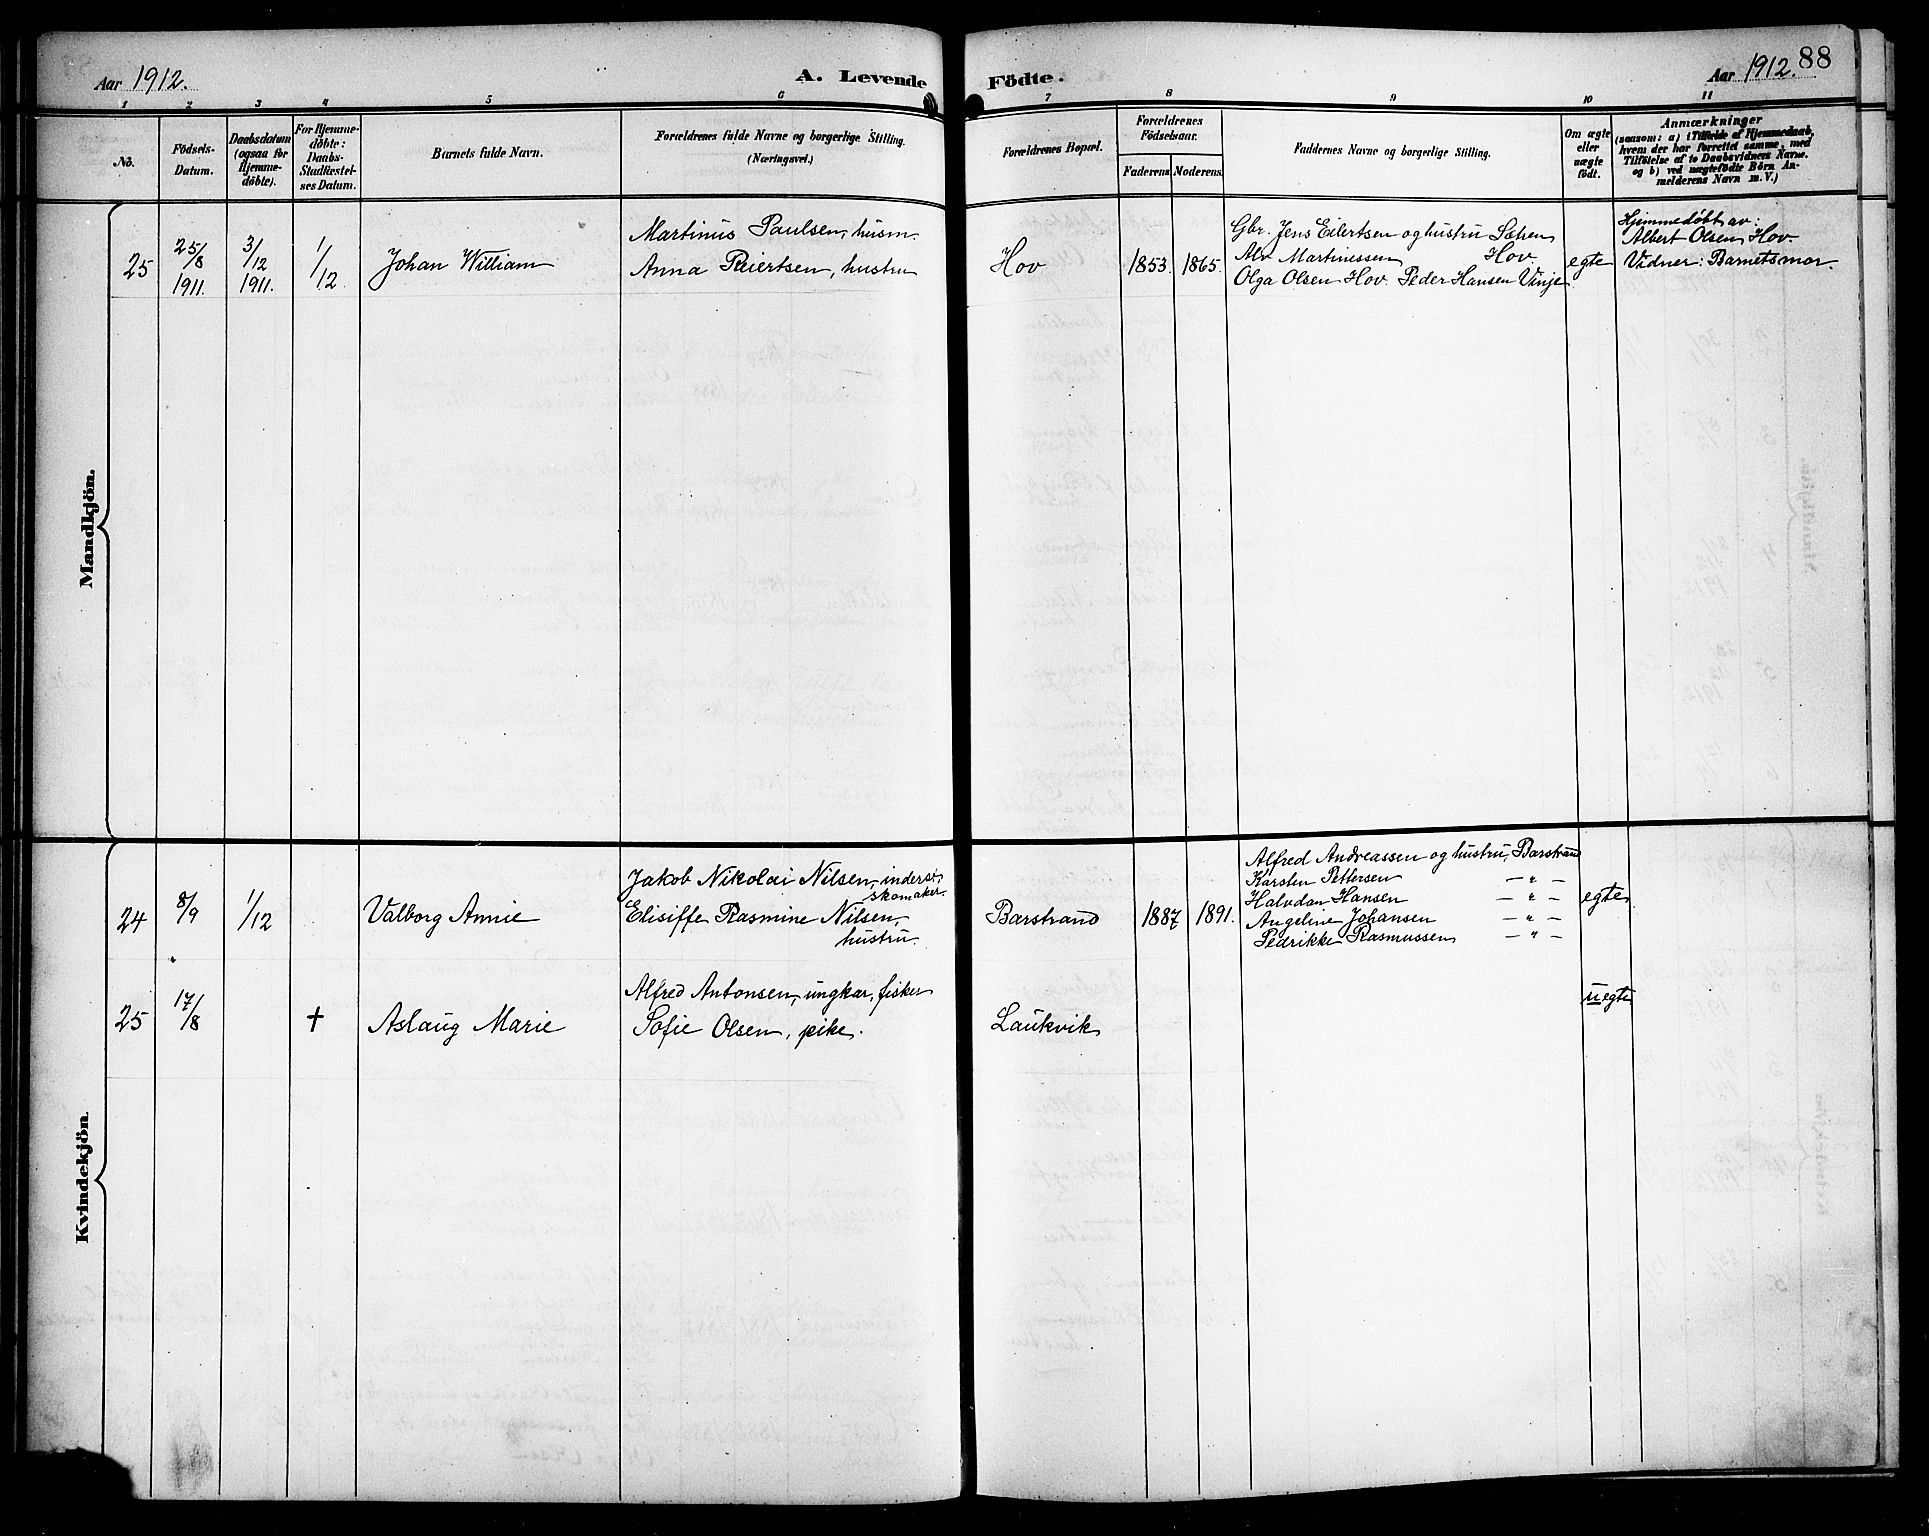 Aar 1912.
A. Levende Födte.
Aar 1912. 88
1 2 3 4 5 6 7 8 9 10 11
No.
Födsels-
Datum.
Daabsdatum
(ogsaa for
Hjemme-
döbte).
For Hjemme-
döbte:
Daabs-
Stadfæstel-
ses Datum.
Barnets fulde Navn.
Forældrenes fulde Navne og borgerlige Stilling.
(Næringsvei.)
Forældrenes Bopæl.
Forældrenes
Födselsaar.
Faderens. Moderens.
Faddernes Navne og borgerlige Stilling.
Om ægte
eller
uægte
födt.
Anmærkninger
(saasom: a) i Tilfælde af Hjemmedaab,
hvem der har forrettet samme, med
Tilföielse af to Daabsvidners Navne.
og b) ved uægtefödte Börn An-
melderens Navn m. V.)
Mandkjön.
25
25/8
1911.
3/12
1911.
1/12
Johan William
Martinus Paulsen, husm.
Anna Reiertsen, hustru
Hov
1853. 1865.
Gbr. Jens Eilertsen og hustru Sæten
Alv Martinussen Hov
Olga Olsen Hov. Peder Hansen Vinje
egte
Hjemmedøbt av:
Albert Olsen Hov.
Vidner: Barnets mor.
Kvindekjön
24
8/9
1/12
Valborg Annie
Jakob Nikolai Nilsen, inderst,
skomaker.
Elisiffe Rasmine Nilsen,
hustru.
Barstrand
1887 1891.
Alfred Andreassen og hustru, Barstrand
Karsten Pettersen — " —
Halvdan Hansen — " —
Angeline Johansen — " —
Pedrikke Rasmussen — " —
egte
25
17/8
†
Aslaug Marie
Alfred Antonsen, ungkar, fisker
Sofie Olsen, pike.
Laukvik
uegte